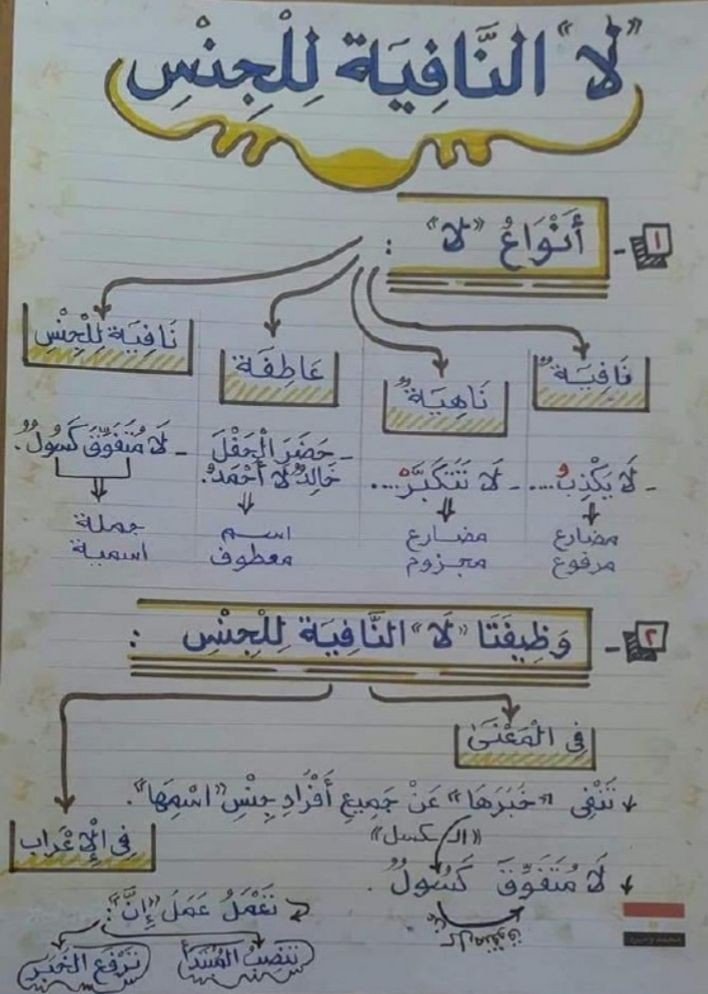 "لَا" النَّافِيَة لِلْجِنْسِ
١- أَنْوَاعُ "لا" :
نَافِيَة
نَاهِيَة
عَاطِفَة
نَافِيَة لِلْجِنْسِ
- لَا يَكْذِبُ....
مضارع
مرفوع
- لَا تَتَكَبَّرْ....
مضارع
مجزوم
- حَضَرَ الْحَفْلَ
خَالِدٌ لَا أَحْمَدُ.
اسم
معطوف
- لَا مُتَفَوِّقَ كَسُولٌ.
جملة
اسمية
٢- وَظِيفَتَا "لَا" النَّافِيَة لِلْجِنْسِ :
فِي الْمَعْنَى
تَنْفِي "خَبَرَهَا" عَنْ جَمِيعِ أَفْرَادِ جِنْسِ "اسْمِهَا".
"الـكسل"
لَا مُتَفَوِّقَ كَسُولٌ.
عن كل متفوق
فِي الْإِعْرَاب
تَعْمَلُ عَمَلَ "إِنَّ":
تَنْصِبُ الْمُبْتَدَأ
تَرْفَع الْخَبَر